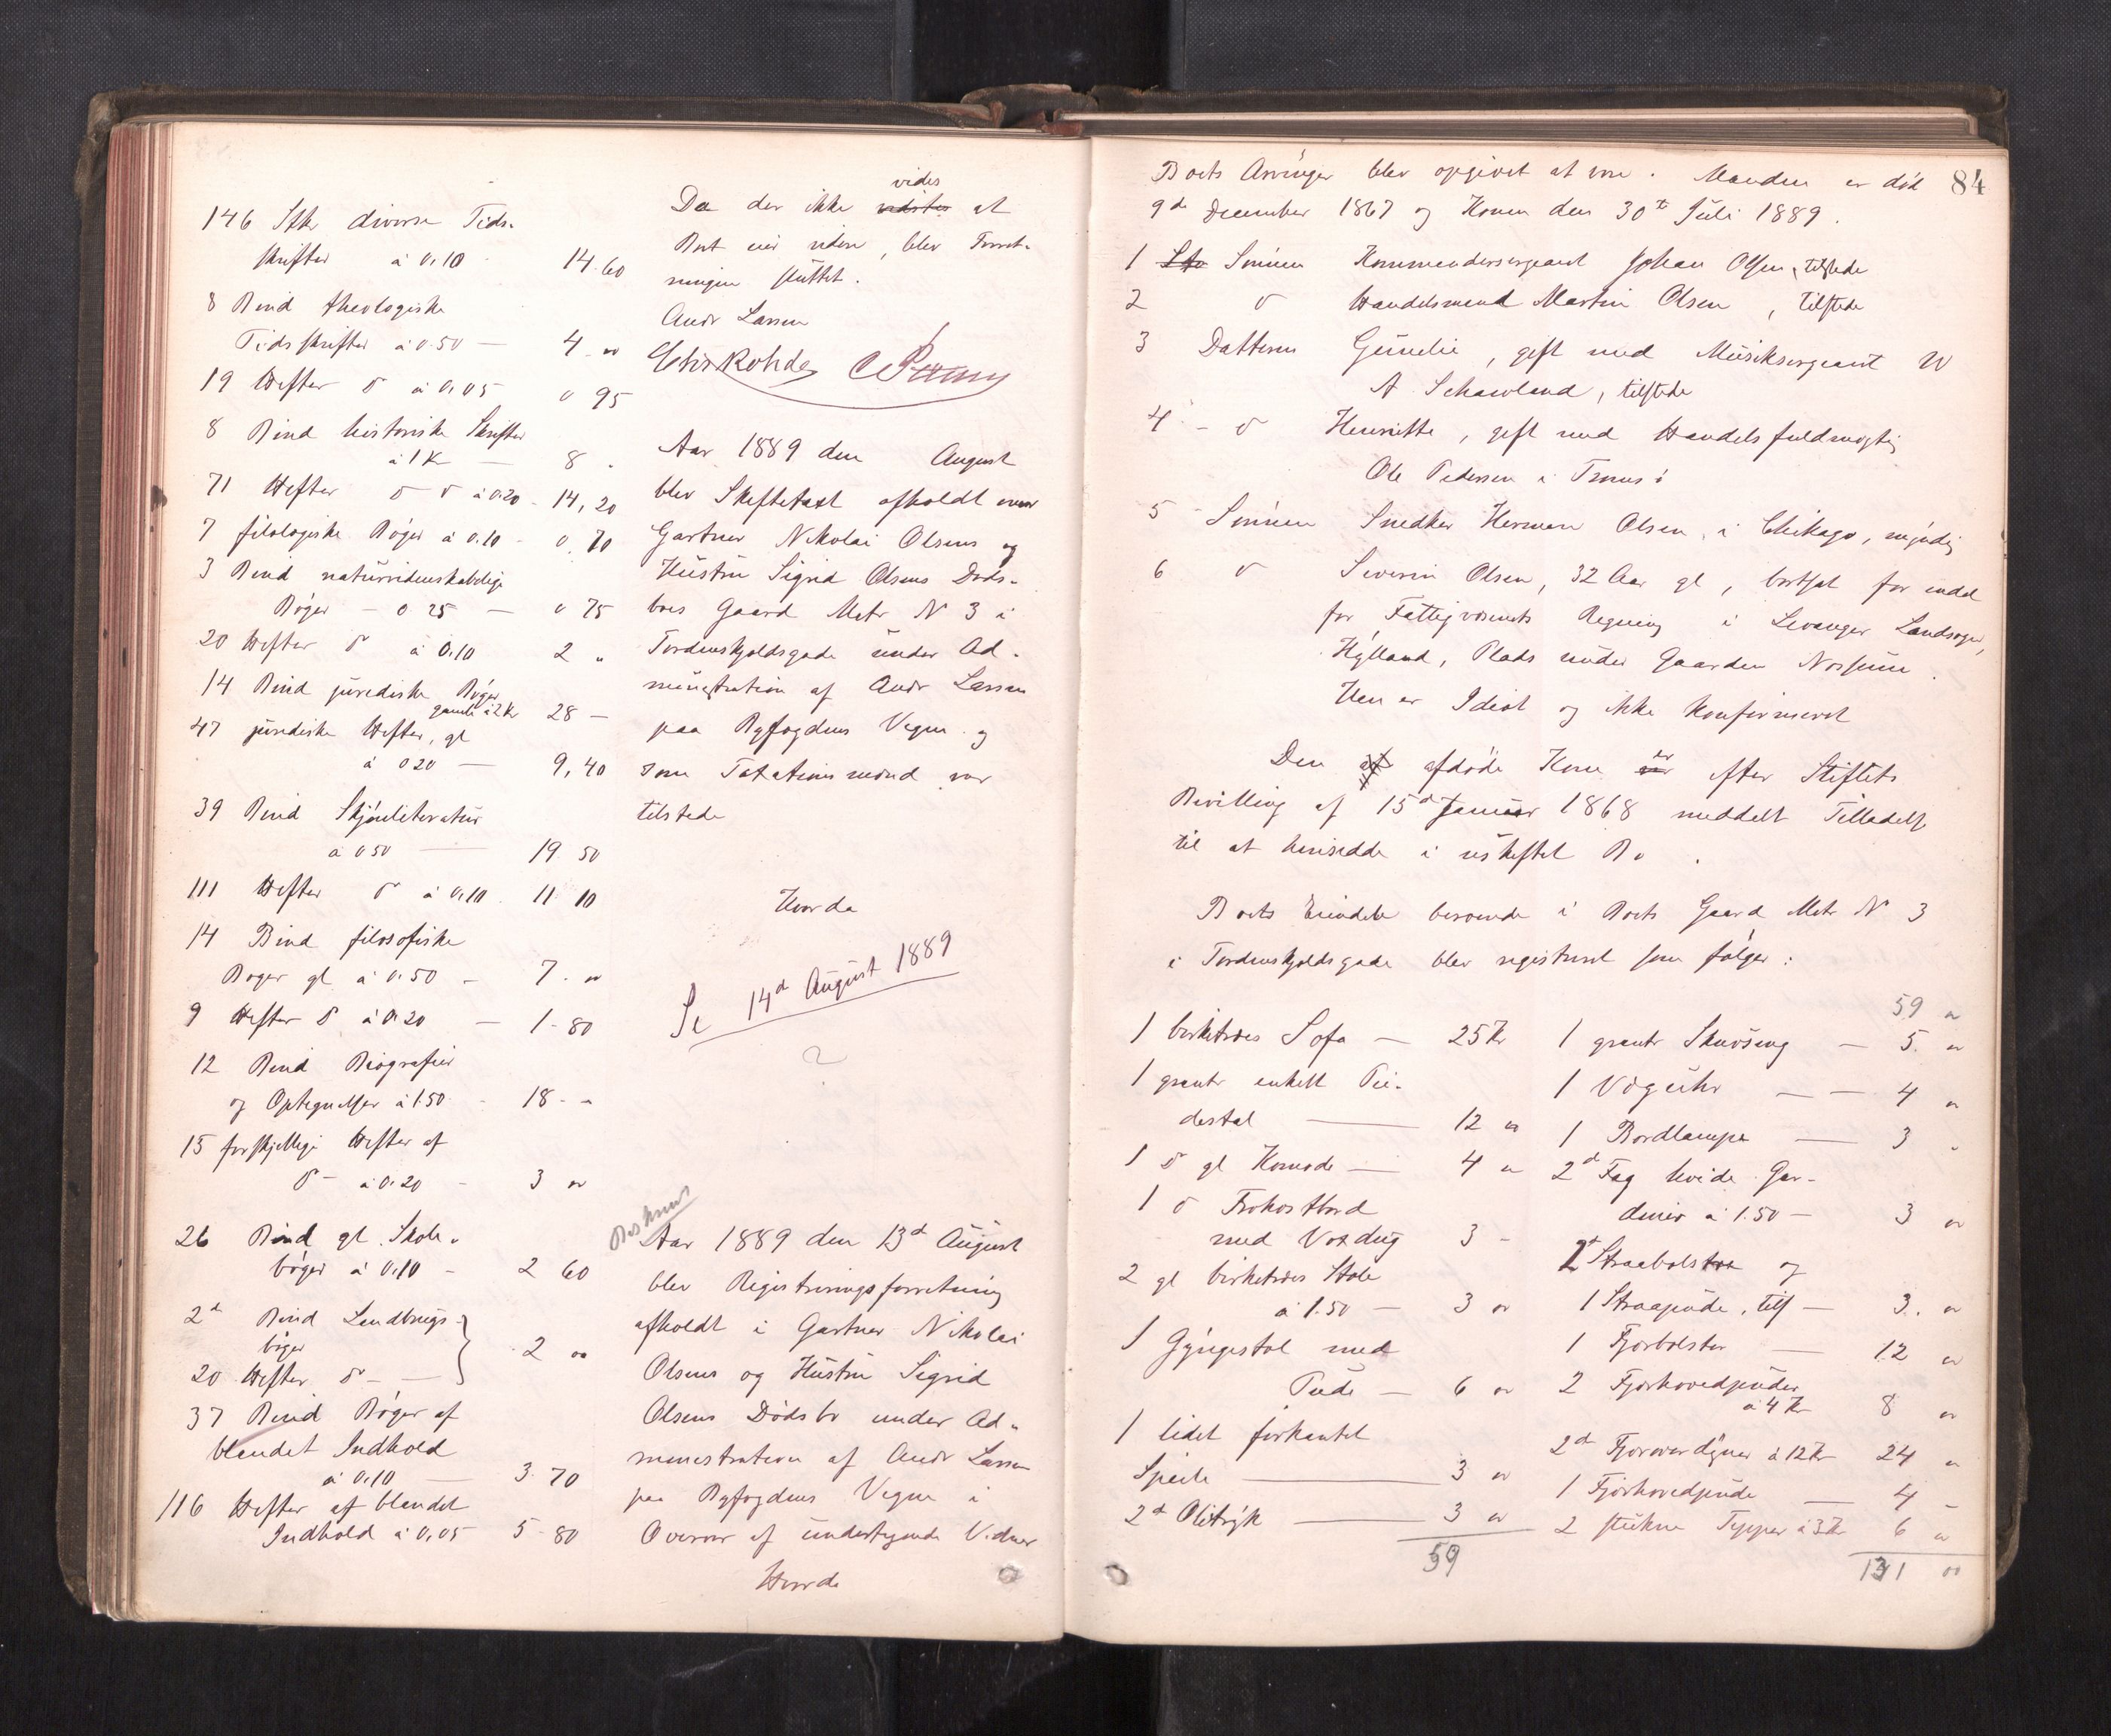 146 Stk diverse Tids-
skrifter à 0.10 14.60
8 Bind theologiske
Tidsskrifter à 0.50 — 4 "
19 Hefter d à 0.05 0 95
8 Bind historiske Skrifter
à 1 Kr — 8 "
71 Hefter d d à 0.20 - 14,20
7 filologiske Bøger à 0.10 - 0.70
3 Bind naturvidenskabelige
Bøger — 0 25 — 0 75
20 Hefter d à 0.10 2 "
14 Bind juridiske Bøger
gamle à 2 Kr 28 —
47 juridiske Hefter, gl
à 0 20 — 9,40
39 Bind Skjønliteratur
à 0 50 — 19 50
111 Hefter d à 0.10 11 10
14 Bind filosofiske
Bøger gl à 0.50 - 7 - "
9 Hefter d à 0.20 — 1 - 80
12 Bind Biografier
og Optegnelser à 1.50 - 18 - "
15 forskjellige Hefter af
d — à 0.20 - 3 "
26 Bind gl. Skole-
bøger à 0.10 - 2 60
2d Bind Landbrugs-
bøger
20 Hefter d — — 2 "
37 Bind Bøger af
blandet Indhold
à 0.10 — 3.70
116 Hefter af blandet
Indhold à 0,05 5-80
vides
Da der ikke vidstes at
Boet eier videre, blev Forret-
ningen sluttet.
Andr Larsen
Chr Rohde
Aar 1889 den August
blev Skiftetaxt afholdt over
Gartner Nikolai Olsens og
Hustru Sigrid Olsens Døds-
boes Gaard Matr N 3 i
Tordenskjoldsgade under Ad-
ministration af Andr Larsen
paa Byfogdens Vegne og
som Taxationsmænd var
tilstede
Hvorda
Se 14d August 1889
?
Aar 1889 den 13d August
blev Registreringsforretning
afholdt i Gartner Nikolai
Olsens og Hustru Sigrid
Olsens Dødsbo under Ad-
ministration af Andr Larsen
paa Byfogdens Vegne i
Overvær af undertegnede Vidner
Hvorda
84
Boets Arvinger blev opgivet at være. Manden er død
9de December 1867 og Konen den 30te Juli 1889.
1 Sønnen Kommandersergeant Johan Olsen, tilstede
2 d Handelsmand Martin Olsen, tilstede
3 Datteren Gunelie, gift med Musiksergeant W
A. Schawland, tilstede
4 - d Henriette, gift med Handelsfuldmægtig
Ole Pedersen i Tromsø
5 - Sønnen Snedker Herman Olsen, i Chikago, myndig
6 d Severin Olsen, 32 Aar gl, bortsat for endel
for Fattigvæsenets Regning i Levanger Landsogn,
Hylland, Plads under Gaarden Nossum.
Han er Idiot og ikke konfirmeret
Den afdøde Kone er efter Stiftets
Bevilling af 15d Januar 1868 meddelt Tilladelse
til at hensidde i uskiftet Bo.
Boets Eiendele beroende i Boets Gaard Matr N 3
i Tordenskjoldsgade blev registreret som følger:
1 birketræes Sofa — 25 Kr
1 grantr enkelt Pie-
destal — 12 "
1 d gl Komode — 4 "
1 d Frokostbord
med Voxdug 3 -
2 gl birketræes Stole
à 1.50 — 3 "
1 Gyngestol med
Pude — 6 "
1 lidet firkantet
Speile — 3 "
2d Olietryk — 3 "
59
59 "
1 grantr Skuvseng — 5 "
1 Vægguhr — — 4 "
1 Bordlampe — 3 "
2d Fag hvide Gar-
diner à 1.50 — 3 "
2d Straabolstre og
1 Straapude, tils — 3. "
1 Fjærbolster — 12 "
2 Fjærhovedpuder
à 4 Kr 8 "
2d Fjæroverdyner à 12 Kr 24 "
1 Fjærhovedpude — 4 -
2 stukne Tepper à 3 Kr 6 "
131 "